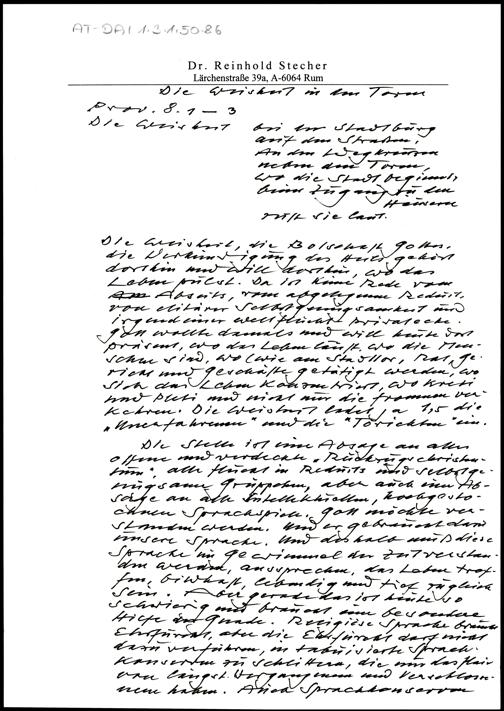 AT-DAI 1.3.1.50.86
Dr. Reinhold Stecher
Lärchenstraße 39a, A-6064 Rum
Die Weisheit in den Toren
Prov. 8.1–3
Die Weisheit bei der Stadtburg
auf den Straßen,
An den Wegkreuzen
neben den Toren,
wo die Stadt beginnt,
beim Zugang zu den
Häusern
ruft sie laut.
Die Weisheit, die Botschaft Gottes,
die Verkündigung des Heils gehört
dorthin und will dorthin, wo das
Leben pulst. Da ist keine Rede vom
Abseits, vom abgelegenen Reduit,
von elitärer Selbstgenügsamkeit und
irgendeiner weltflüchtigen
Gott wollte damals und will heute dort
präsent, wo das Leben läuft, wo die Men-
schen sind, wo (wie am Stadttor) Rat, Ge-
richt und Geschäfte getätigt werden, wo
sich das Leben konzentriert, wo Kreti
und Pleti und nicht nur die frommen ver-
kehren. Die Weisheit ladet, a 1,5 die
„Unerfahrenen" und die „Törichten" ein.
Die Stelle ist eine Absage an alles
offene und verdeckte „Rückzugschristen-
tum", alle Flucht in Reduits und selbstge-
nügsame Grüppchen, aber auch eine Ab-
sage an alle intellektuellen, hochgesto-
chenen Sprachspiele. Gott möchte ver-
standen werden. Und er gebraucht dazu
unsere Sprache. Und deshalb muß diese
Sprache im Gewimmel der Zeit verstan-
den werden, aussprechen, das Leben tref-
fen, bildhaft, lebendig und tief zugleich
sein. Aber gerade das ist heute so
schwierig und braucht eine besondere
Hilfe der Gnade. Religiöse Sprache braucht
Ehrfurcht, aber die Ehrfurcht darf nicht
dazu verführen, in tabuisierte Sprach-
konserven zu schlittern, die nur das Flair
von längst Vergangenem und Verschlosse-
nem haben. Auch Sprachkonserven